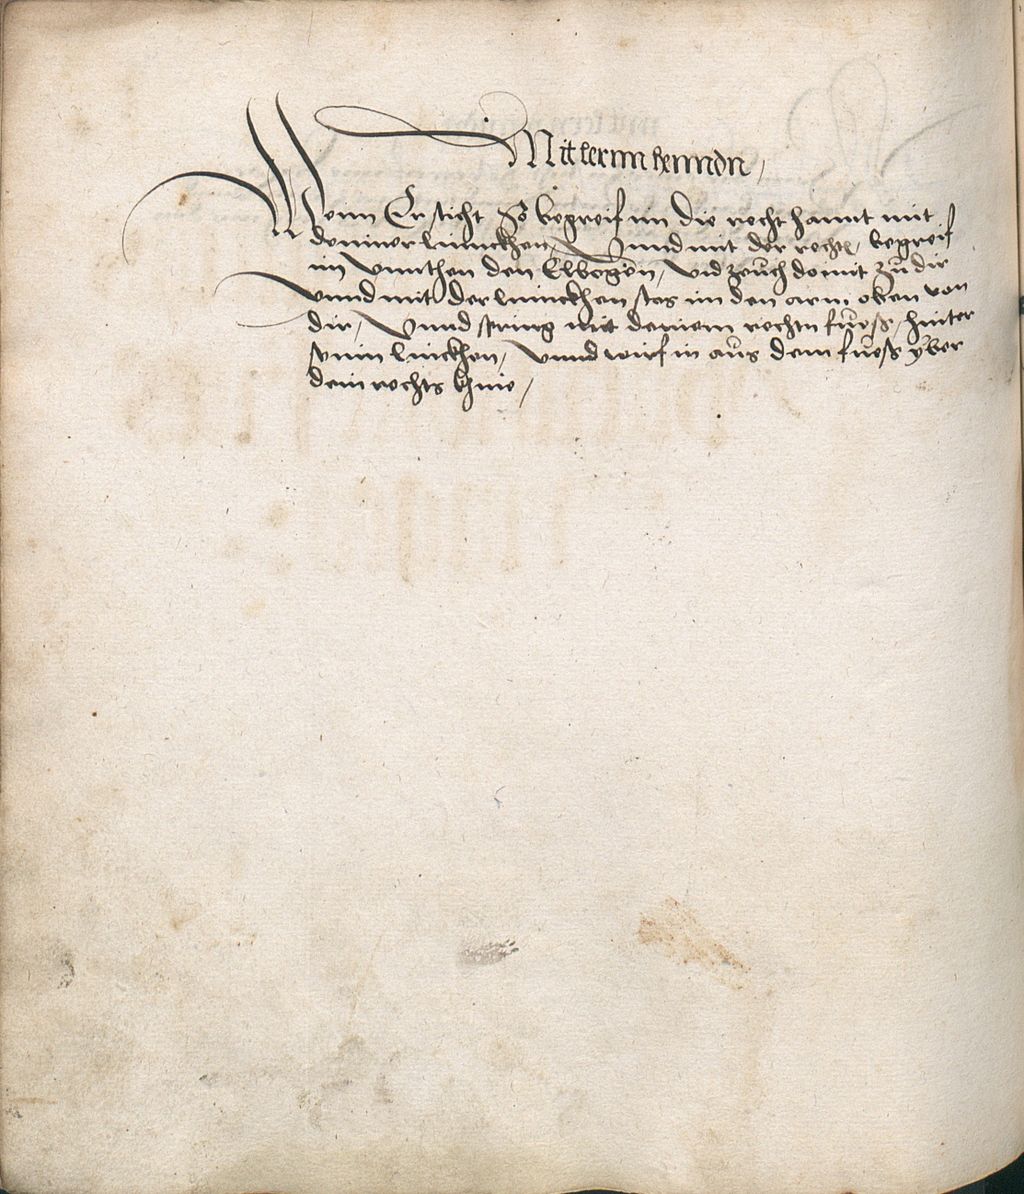 Mitter im tennon,
Wenn Er sticht So begreif im die recht hannt mit
deiner linnckhen, Vnnd mit der rechtn, begreif
im vnnthen den Elbogen, vnd zeuch domit zu dir
vnnd mit der linnckhen stos im den arm oben von
dir, Vnnd spring mit deinem rechtn fueß, hinter
seinn linckhen, vnnd wirf in aus dem fueß yber
dein rechts khnie,